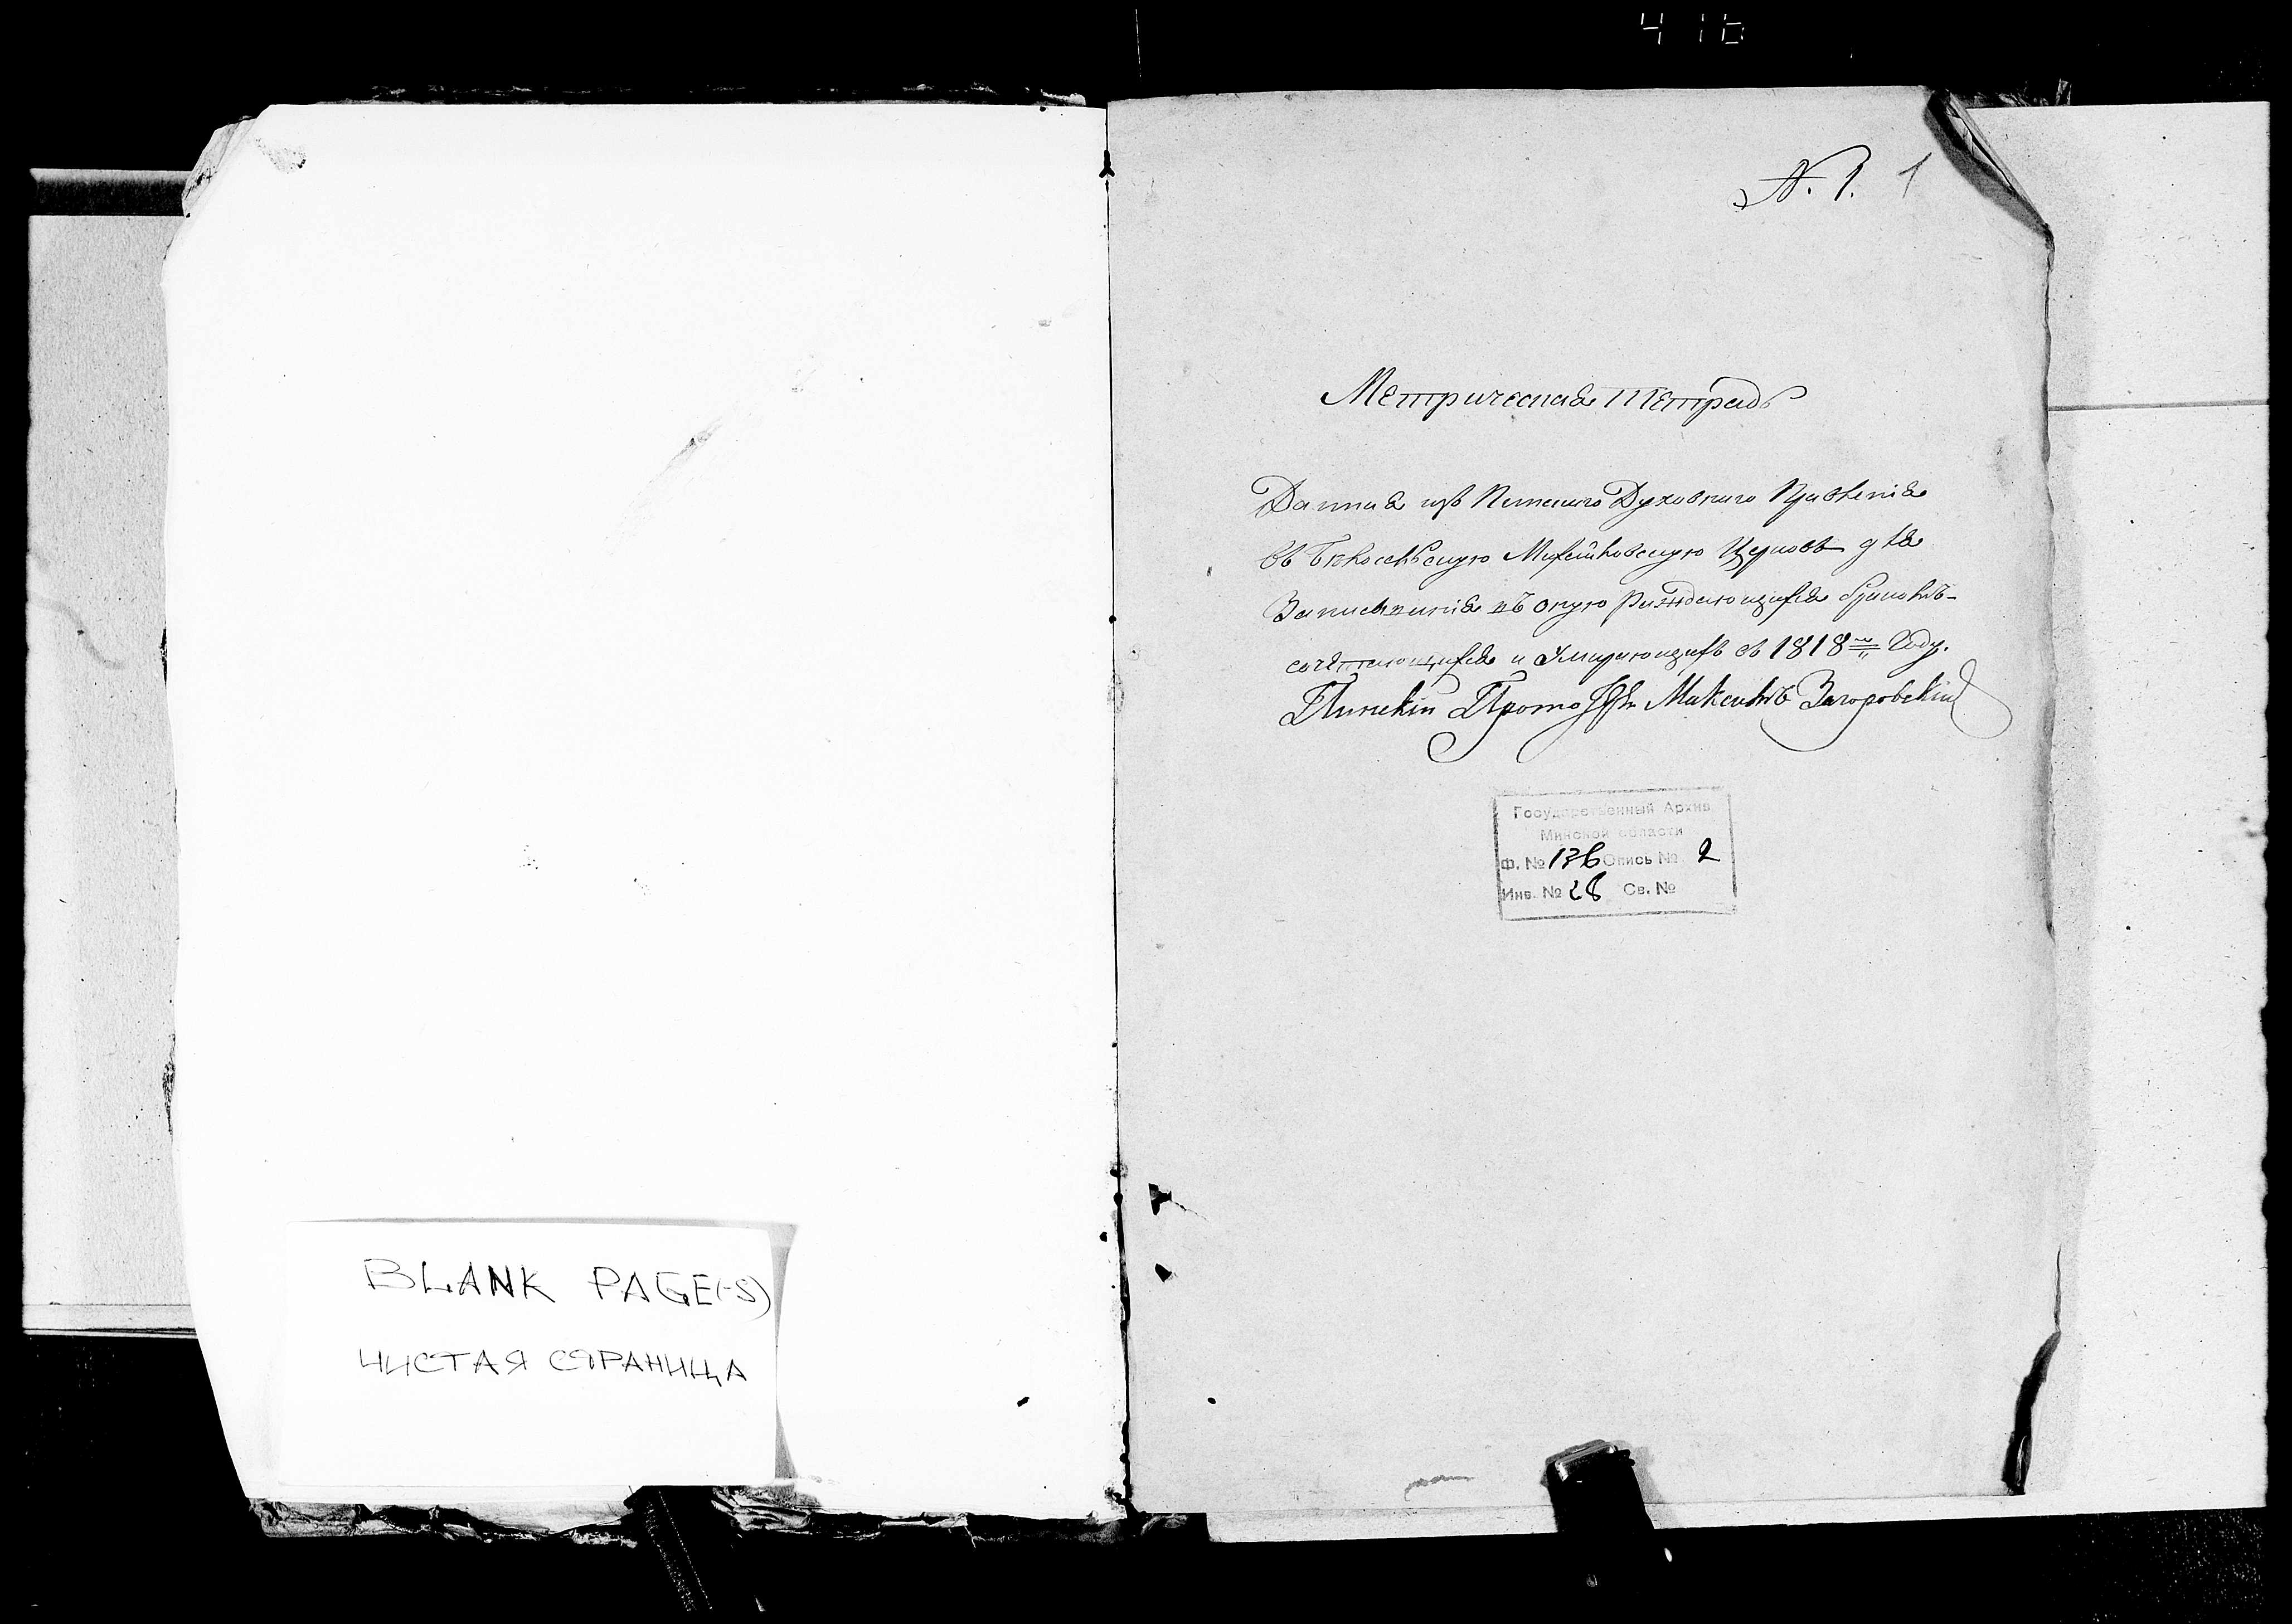 416
N. 1. 1
Метрическая Тетрадь
Данная изъ Пинскаго Духовнаго Правленія
въ Церковь для
Записыванія въ оную раждающихся бракомъ-
сочетающихся и Умирающихъ въ 1818м Году.
Пинскій Прото Максимъ Загоровскій
Государственный Архив
Минской области
Ф. № 136 Опись № 2
Инв. № 28 Св. №
BLANK PAGE(-S)
ЧИСТАЯ СТРАНИЦА